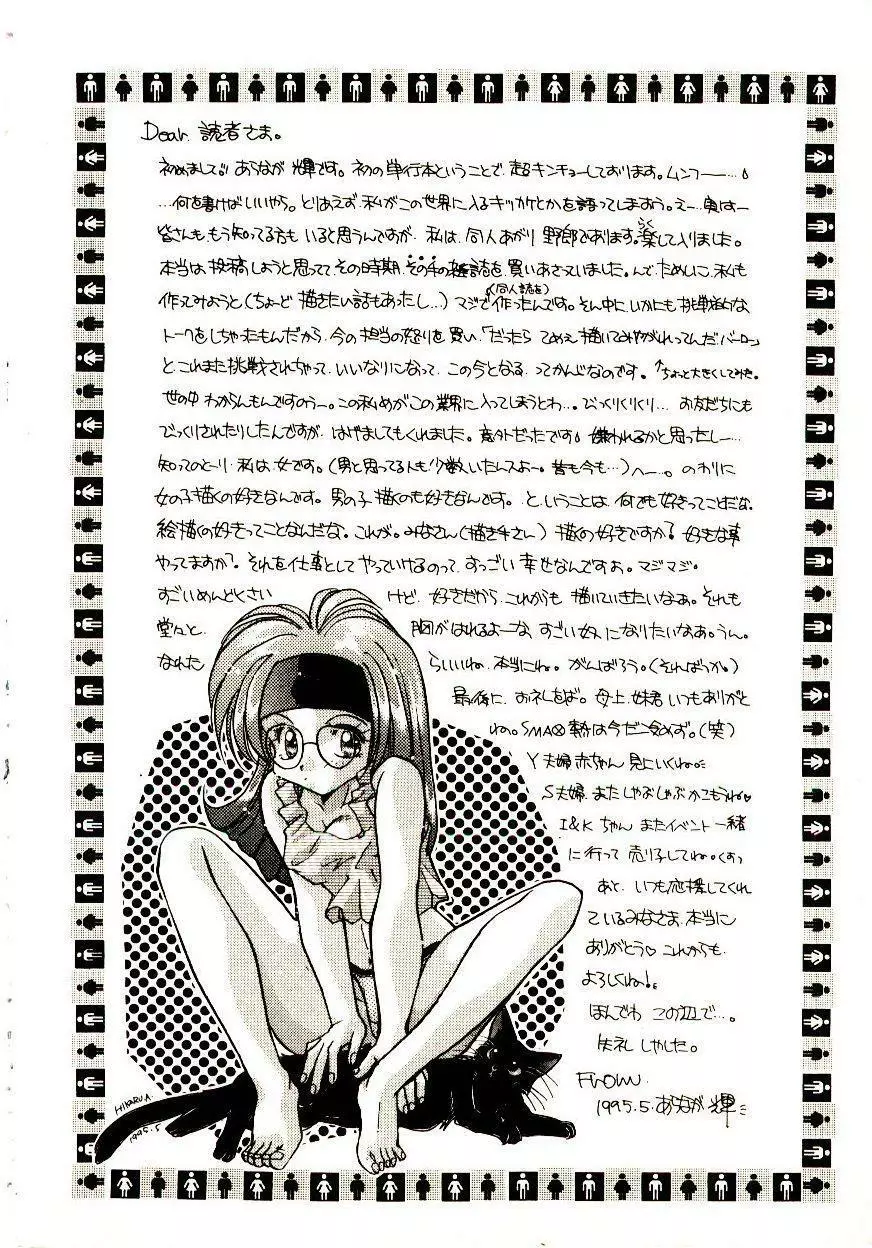 Dear 読者さま。
初めまして!! あらなが 輝です。初の単行本ということで、超キンチョーしております。ムンフーー…。
…何を書けばいいやら。とりあえず、私がこの世界に入るキッカケとかを語ってしまおう。えー、実はー
皆さんも、もう知ってる方も いると思うんですが、私は、同人あがり 野郎であります。楽して入りました。
らく
本当は、投稿しようと思ってて その時期、その手の雑誌を、買いあさっていました。んで、ためしに、私も
(同人誌を)
作ってみようと(ちょーど 描きたい話もあったし…) マジで作ったんです。そん中に、いかにも 挑戦的な
トークをしちゃったもんだから、今の担当の怒りを買い、「だったら てめえ 描いてみやがれってんだ、バーロー」
と、これまた挑戦されちゃって、いいなりになって、この今となる。ってかんじなのです。↑ちょっと大きくしてみた。
世の中 わからんもんですのうー。この私めがこの業界に入ってしまうとわ…。びっくりくりくり…。お友だちにも
びっくりされたりしたんですが、はげましてもくれました。意外だったです。嫌われるかと思ったしー…
知ってのとーり、私は、女です。(男と思ってる人も 少数いたんスよー。昔も今も…) へー…。のわりに
女の子描くの好きなんです。男の子 描くのも好きなんです。と、いうことは、何でも好きってことだな。
絵描くの好きってことなんだな。これが。みなさん(描き手さん) 描くの好きですか? 好きな事
やってますか? それを仕事として やっていけるのって、すっごい 幸せなんですよぉ。マジマジ。
すごいめんどくさい けど、好きだから、これからも 描いていきたいなぁ。それも
堂々と、 胸がはれるよーな、すごい奴になりたいなあ。うん。
なれた らいいね。本当にね。がんばろう。(そればっか。)
最後に、お礼をば。母上、妹君 いつもありがと
ね。SMAP熱は今だ冷めず。(笑)
Y夫婦 赤ちゃん 見にいくね。
S夫婦、また しゃぶしゃぶ かこもうね♡
I&Kちゃん またイベント一緒
に行って 売り子してね。
あと、いつも応援してくれ
ているみなさま、本当に
ありがとう♡ これからも
よろしくね!
ほんでわ この辺で…。
失礼 しやした。
From
1995.5. あらなが 輝
HIKARU.A.
1995.5